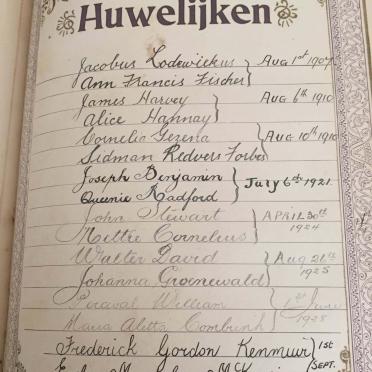 Huwelijken
Jacobus Lodewickus } Aug 1st 1907
Ann Francis Fischer
James Harvey } Aug 6th 1910
Alice Hannay
Cornelia Gezena } Aug 10th 1910
Sidman Redvers Forbes
Joseph Benjamin } July 6th 1921.
Queenie Radford
John Stewart } APRIL 30th 1924
Mettre Cornelius
Walter David } Aug 26th 1925
Johanna Groenewald
Percival William } 1st June 1928
Maria Aletta Combrink
Frederick Gordon Kenmuir } 1st SEPT.